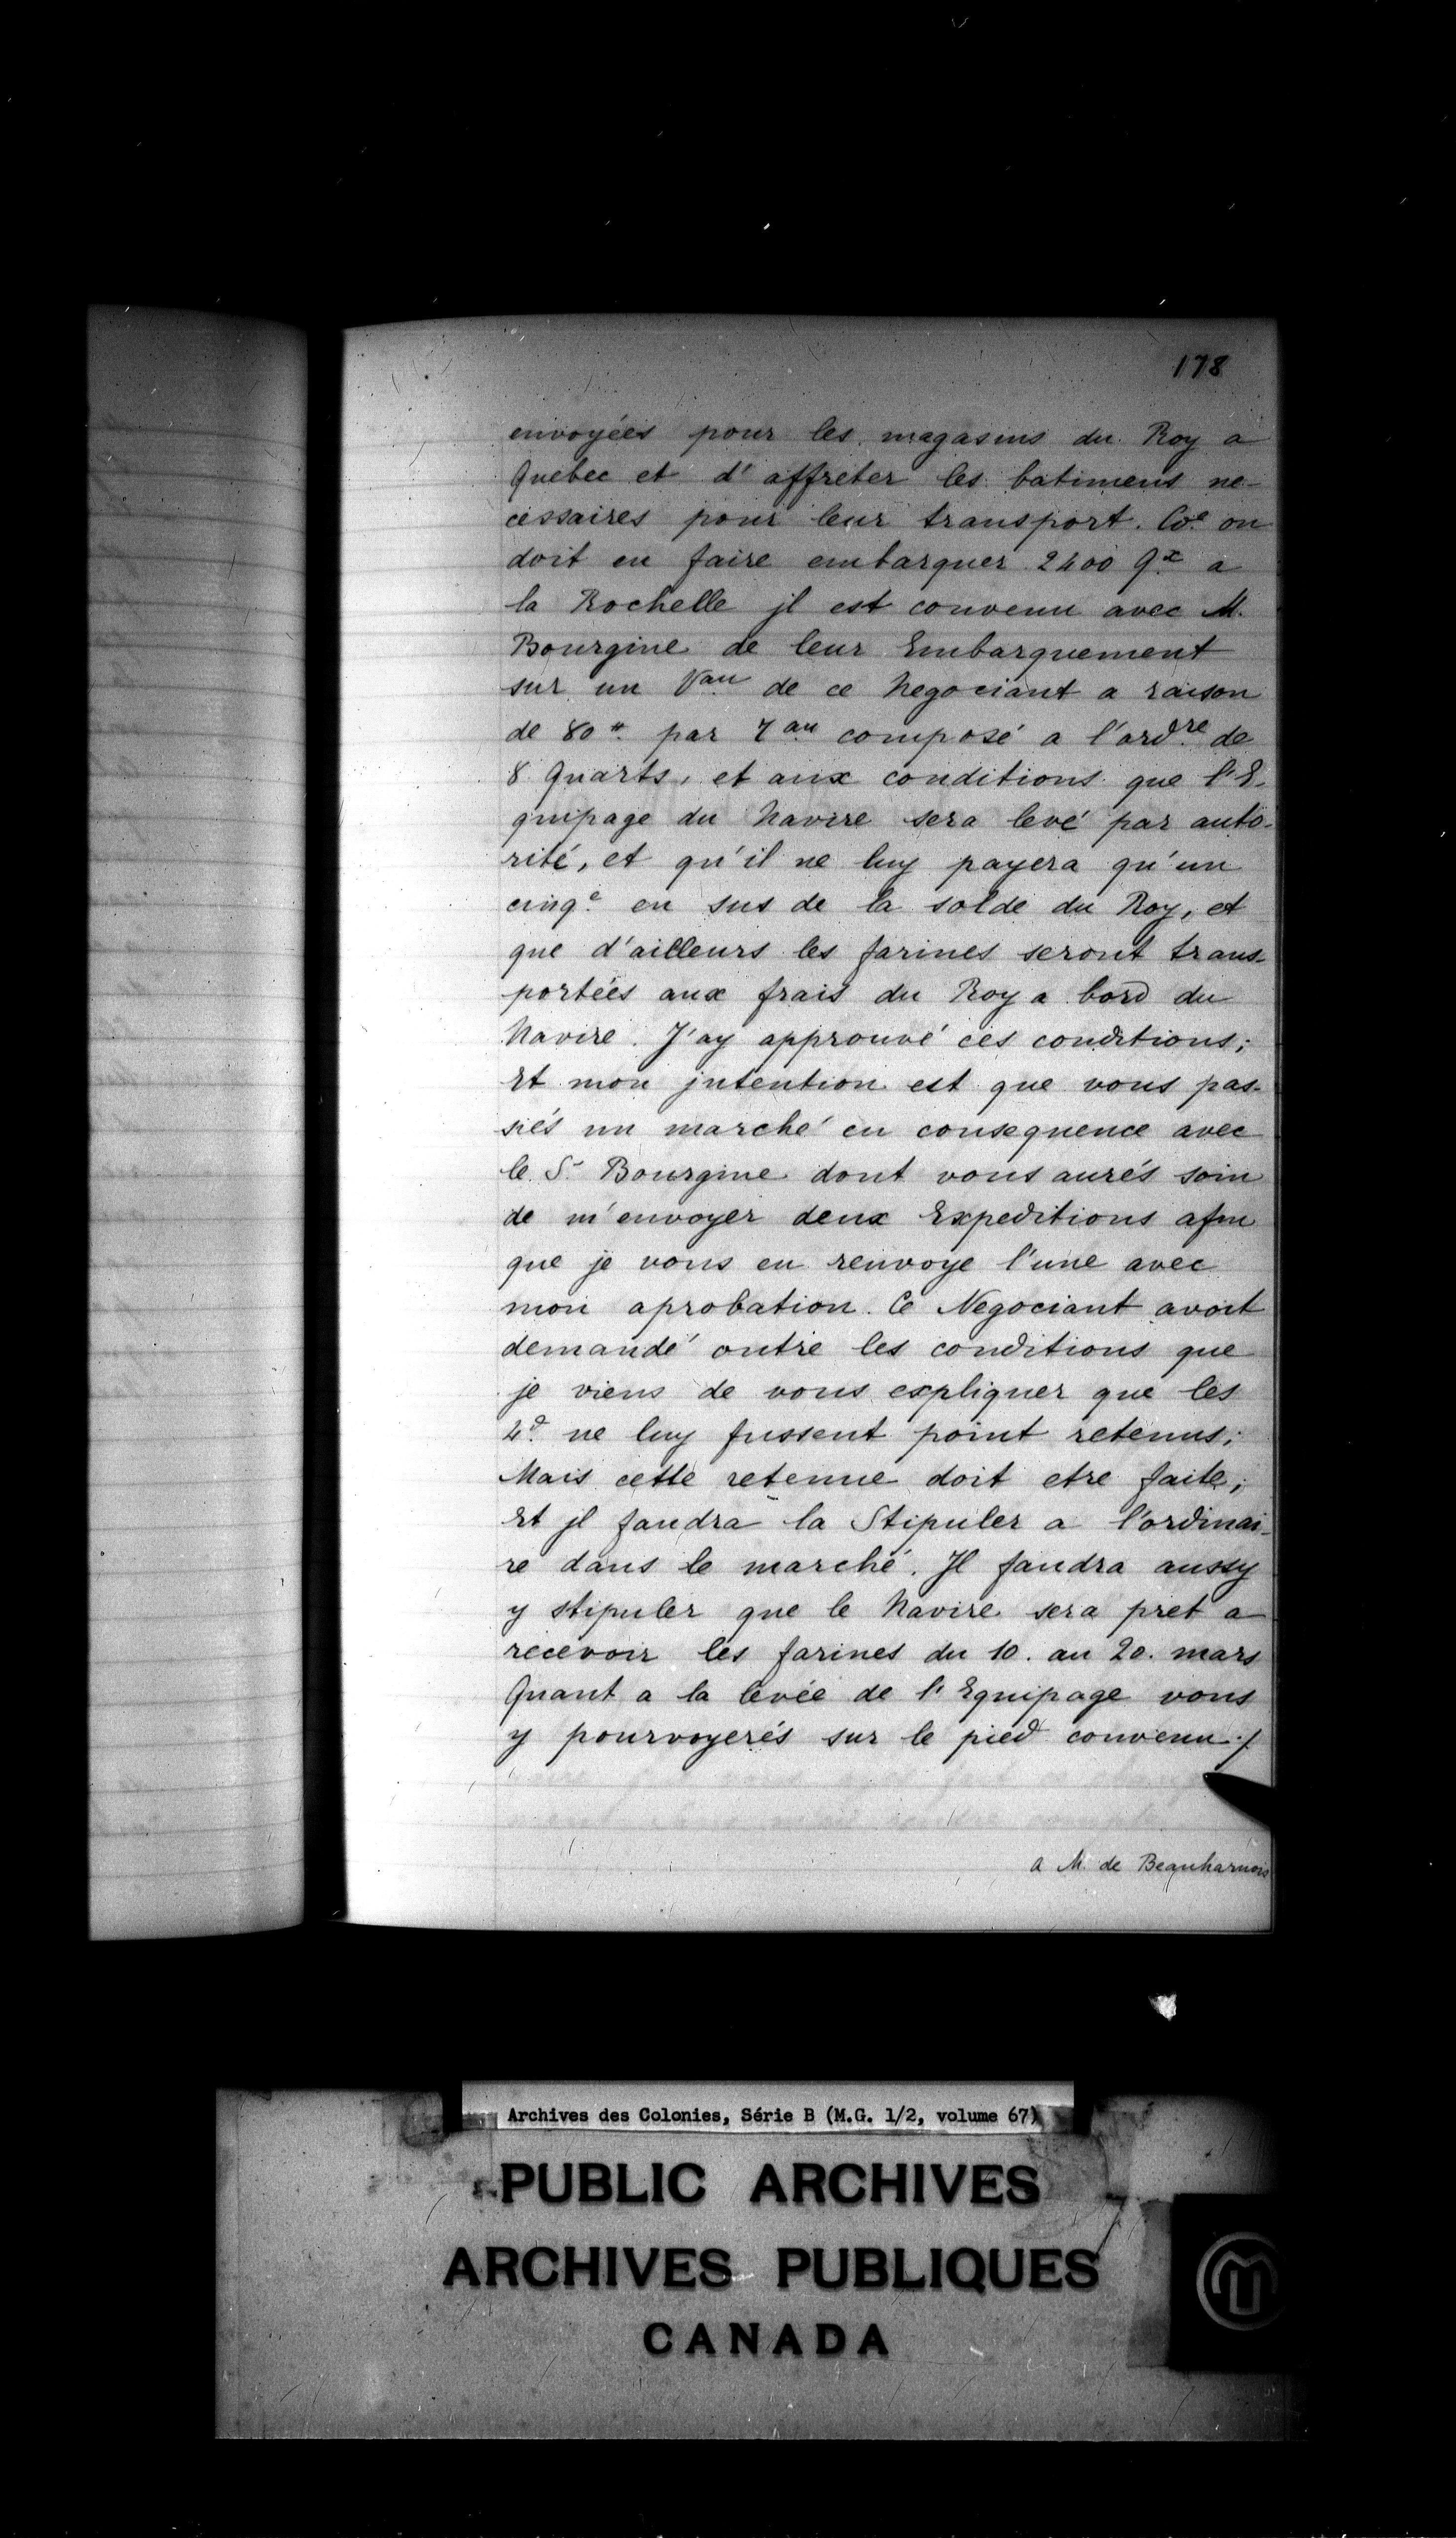 178
envoyées pour les magasins du Roy a
Quebec et d'affreter les batimens ne-
cessaires pour leur transport. Co.e on
doit en faire embarquer 2400 q.x a
la Rochelle jl est convenu avec M.
Bourgine de leur Embarquement
sur un Vau de ce Negociant a raison
de 80# par Tau composé a l'ord.re de
8 Quarts, et aux conditions que l'E-
quipage du Navire sera levé par auto-
rité, et qu'il ne luy payera qu'un
cinq.e en sus de la solde du Roy, et
que d'ailleurs les farines seront trans-
portées aux frais du Roy a bord du
Navire. J'ay approuvé ces conditions;
Et mon jntention est que vous pas-
siés un marché en consequence avec
le S.r Bourgine dont vous aurés soin
de m'envoyer deux Expeditions afin
que je vous en renvoye l'une avec
mon aprobation. Ce Negociant avoit
demandé outre les conditions que
je viens de vous expliquer que les
4d. ne luy fussent point retenus;
Mais cette retenue doit etre faite;
Et jl faudra la Stipuler a l'ordinai-
re dans le marché. Jl faudra aussy
y stipuler que le Navire sera pret a
recevoir les farines du 10. au 20. mars
Quant a la levée de l'Equipage vous
y pourvoyerés sur le pied convenu ./.
a M. de Beauharnois
Archives des Colonies, Série B (M.G. 1/2, volume 67)
PUBLIC ARCHIVES
ARCHIVES PUBLIQUES
CANADA